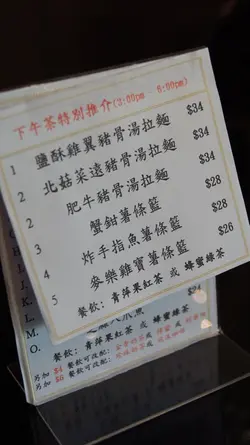 下午茶特別推介(2:00pm - 6:00pm)
1 鹽酥雞翼豬骨湯拉麵 $34
2 北菇菜遠豬骨湯拉麵 $34
2 肥牛豬骨湯拉麵 $34
3 蟹鉗薯條籃 $28
4 炸手指魚薯條籃 $28
5 麥樂雞寶薯條籃 $26
餐飲: 青萍果紅茶 或 蜂蜜綠茶
J.
K.
L.
M.
O.
餐飲: 青萍果紅茶 或 蜂蜜綠茶
另加 $4 餐飲可改配:
另加 $6 餐飲可改配: